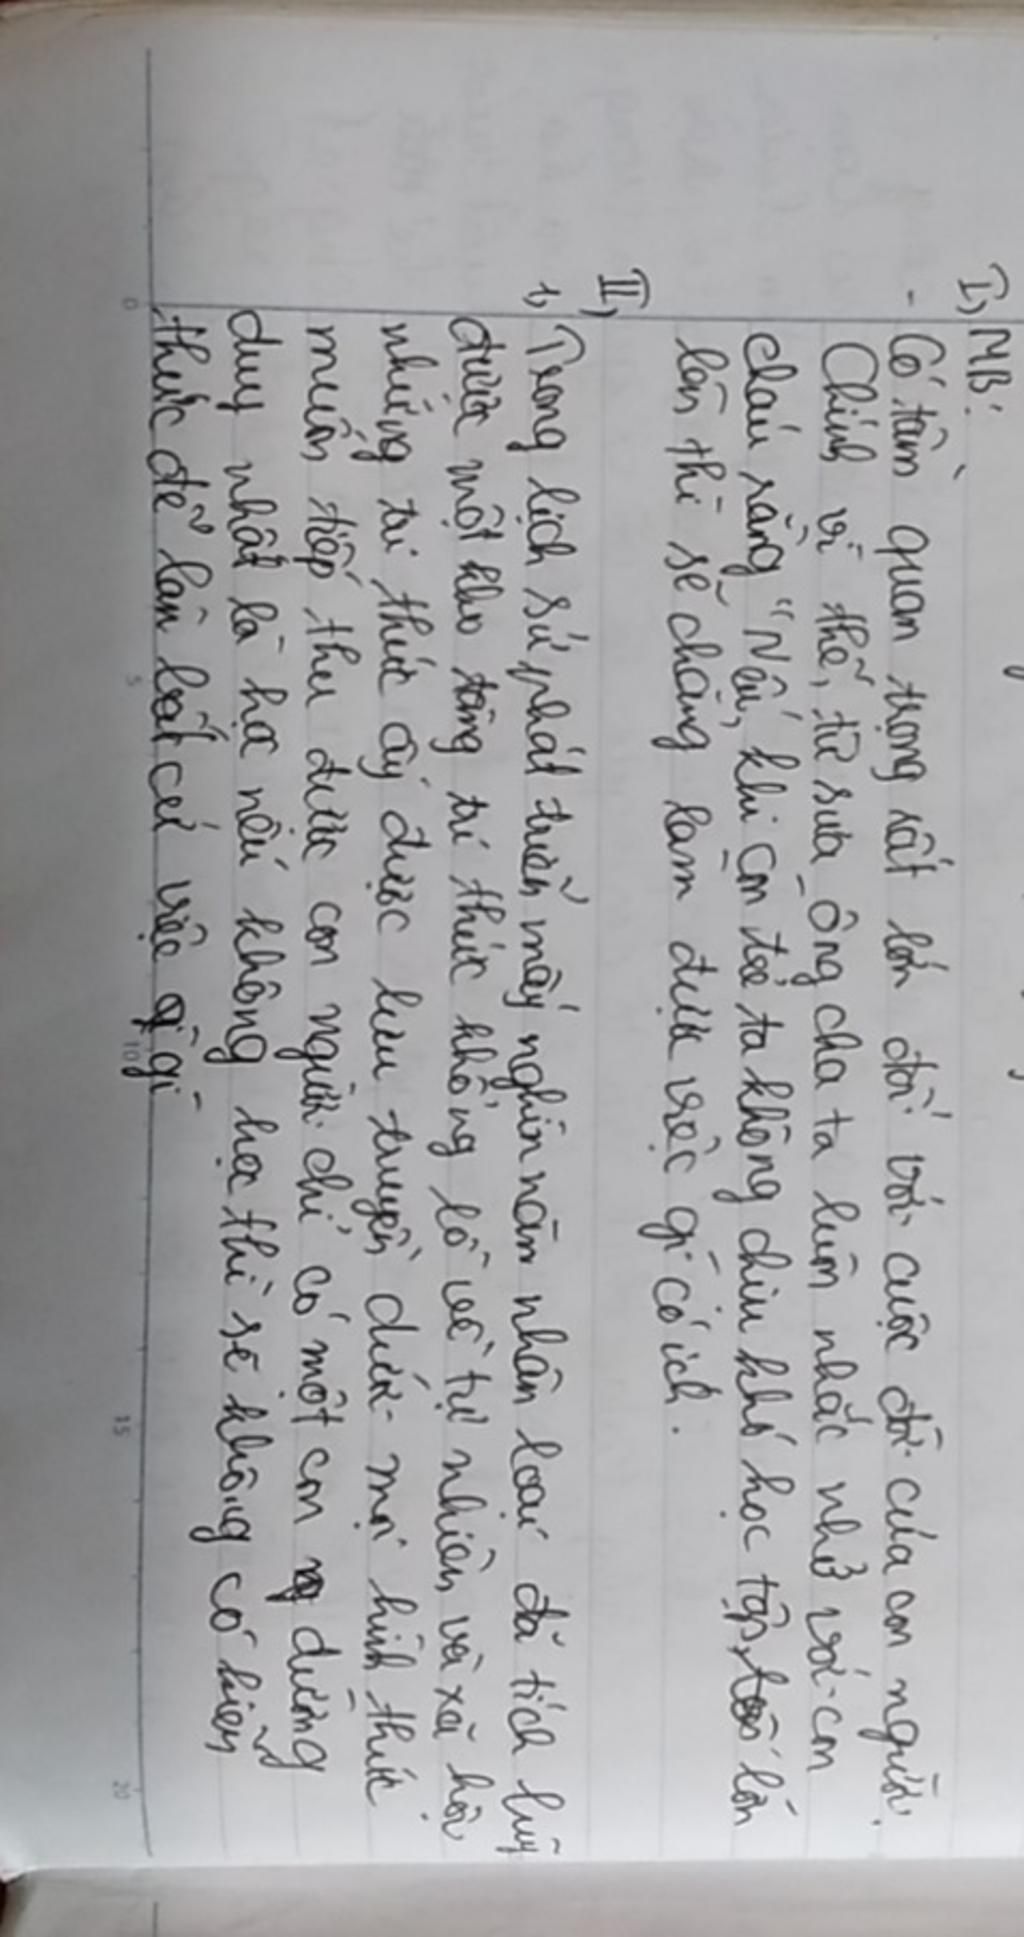 I, MB:
- Có tầm quan trọng rất lớn đối với cuộc đời của con người.
Chính vì thế, từ xưa ông cha ta luôn nhắc nhở với con
cháu rằng "Nếu khi còn trẻ ta không chịu khó học tập, lớn
lên thì sẽ chẳng làm được việc gì có ích.
II,
1, Trong lịch sử phát triển mấy nghìn năm nhân loại đã tích luỹ
được một kho tàng tri thức khổng lồ về tự nhiên và xã hội
những tri thức ấy được lưu truyền dưới mọi hình thức
muốn tiếp thu được con người chỉ có một con đường
duy nhất là học nếu không học thì sẽ không có kiến
thức để làm bất cứ việc gì
0 5 10 15 20